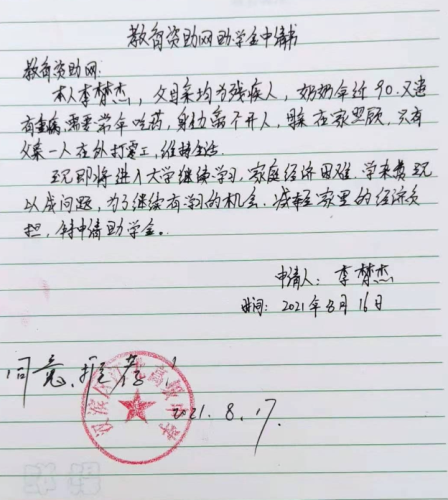 教育资助网助学金申请书
教育资助网:
本人李梦杰,父母亲均为残疾人,奶奶年近90.又患
有重病,需要常年吃药,身边离不开人,母亲在家照顾,只有
父亲一人在外打零工,维持生活.
现即将进入大学继续学习,家庭经济困难,学杂费现
以成问题,为了继续有学习的机会.减轻家里的经济负
担,特申请助学金.
申请人:李梦杰
时间:2021年8月16日
同意.推荐
2021.8.17.